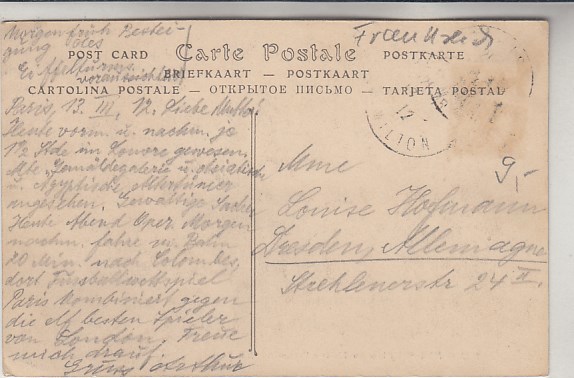 Morgen früh Bestei-
gung des
Eiffelturms
voraussichtlich
Frankreich
POST CARD Carte Postale POSTKARTE
BRIEFKAART — POSTKAART
CARTOLINA POSTALE — ОТКРЫТОЕ ПИСЬМО — TARJETA POSTAL
Paris, 13. III. 12. Liebe Mutter!
Heute vorm. u. nachm. je
1½ Stde im Louvre gewesen.
Gemäldegalerie u. asiatische
u. Ägyptische Altertümer
angesehen. Gewaltige Sache,
Heute Abend Oper. Morgen
nachm. fahre m. Bahn
20 Min. nach Colombes,
dort Fussballwettspiel
Paris kombiniert gegen
die elf besten Spieler
von London. Freue
mich drauf.
Gruss Arthur
9,-
Mme
Louise Hofmann
Dresden, Allemagne
Strehlenerstr 24 II.
12
MILTON